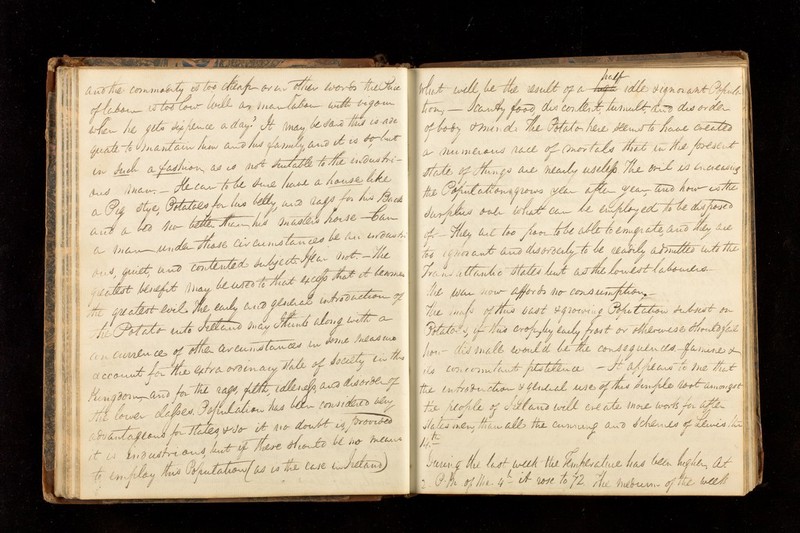 and the commodity is too cheap or in other words the Price
of labour is too low Will any man labour with vigour
when he gets sixpence a day? It may be said this is ade
quate to maintain him and his family and it is so, but
in such a fashion as is not suitable to the industri-
ous man. — He can to be sure have a house like
a Pig stye, Potatoes for his belly, and rags for his Back
and a bed no better than his masters horse — Can
a man under those circumstances be an industri
ous, quiet, and contented subject I fear not. — The
greatest benefit may be used to that excess that it becomes
the greatest evil. The early and general introduction of
the Potato into Ireland may I think along with a
concurrence of other circumstances in some measure
account for the extraordinary state of Society in this
Kingdom, and for the rags, filth, idleness, and disorder of
the lower classes. Population has been considered very
advantageous for States, & so it no doubt is, provided
it is industrious, but if there should be no means
to employ this Population (as is the case in Ireland)
What will be the result of a half idle & ignorant Popula
tion, — Scanty food discontent, tumult, and disorder
of body & mind. The Potato here seems to have created
a numerous race of mortals that in the present
state of things are nearly useless. The evil is increasing
the Population grows year after year, and how is the
surplus over what can be employed to be disposed
of — They are too poor to be able to emigrate, and they are
too ignorant and disorderly to be readily admitted into the
Trans atlantic States but as the lowest labourers.
The war now affords no consumption.
The mass of this vast & growing Population subsist on
Potatoes, if this crop by early frost or otherwise should fail
how dismal would be the consequences, famine &
its concomitant pestilence — It appears to me that
the introduction & general use of this simple root amongst
the people of Ireland will create more work for after
States men, than all the cunning and schemes of
14th
During the last week the Temperature has been higher, At
2 P.M. of the 4th it rose to 72 The medium of the week